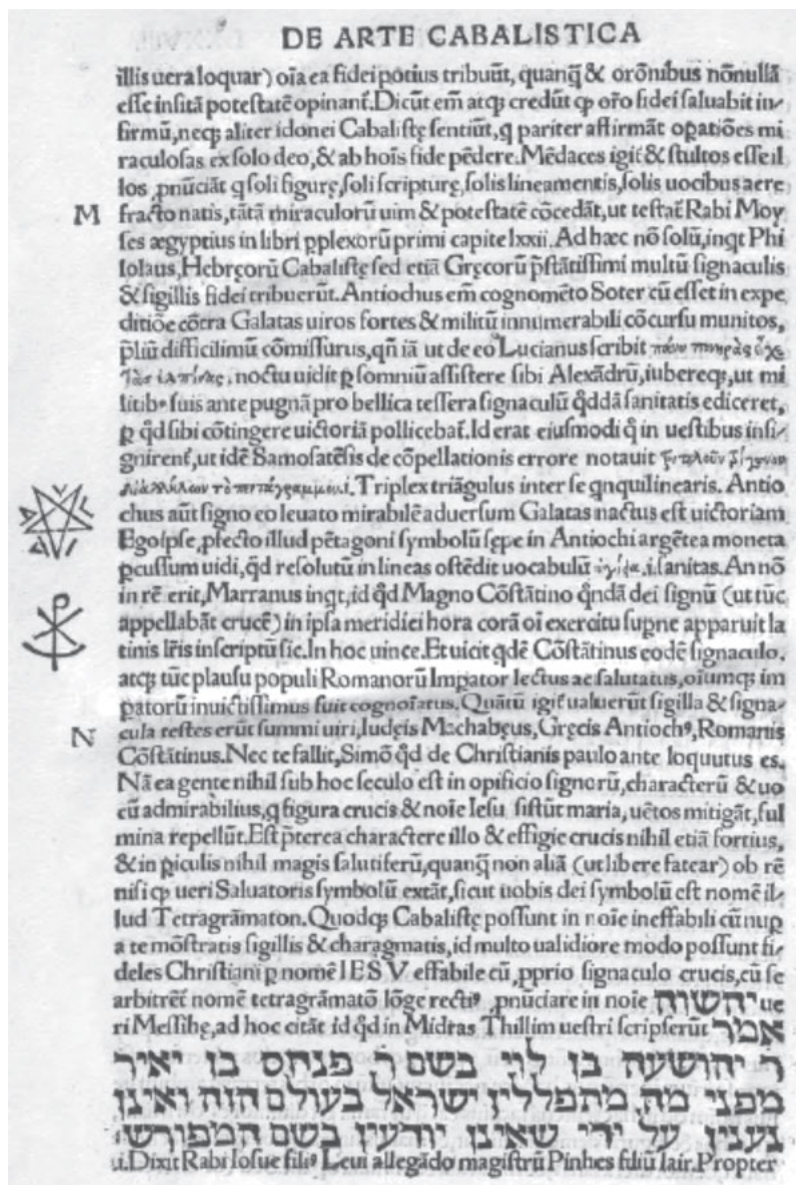 DE ARTE CABALISTICA
illis uera loquar) oīa ea fidei potius tribuūt, quanq̄ & orōnibus nōnullā
esse insitā potestatē opinant̃. Dicūt em̄ atq; credūt ꝙ orō fidei saluabit in-
firmū, neq; aliter idonei Cabalistę sentiūt, q pariter affirmāt oꝑatiōes mi
raculosas ex solo deo, & ab hoīs fide pēdere. Mēdaces igit̃ & stultos esse il
los ꝓnūciāt q soli figurę, soli scripturę, solis lineamentis, solis uocibus aere
M fracto natis, tātā miraculorū uim & potestatē cōcedāt, ut testat̃ Rabi Moy
ses ægyptius in libri ꝑplexorū primi capite lxxii. Ad hæc nō solū, inqt Phi
lolaus, Hebręorū Cabalistę sed etiā Gręcorū p̄stātissimi multū signaculis
& sigillis fidei tribuerūt. Antiochus em̄ cognomēto Soter cū esset in expe
ditiōe cōtra Galatas uiros fortes & militū innumerabili cōcursu munitos,
p̄liū difficilimū cōmissurus, qn̄ iā ut de eo Lucianus scribit πάνυ πονηρὰς εἶχε
τὰς ἐλπίδας, noctu uidit ꝑ somniū assistere sibi Alexādrū, iubereq;, ut mi
litibꝰ suis ante pugnā pro bellica tessera signaculū qďdā sanitatis ediceret,
ꝑ qď sibi cōtingere uictoriā pollicebat̃. Id erat eiusmodi q̇ in uestibus insi-
gnirent̃, ut idē Samosatēsis de cōpellationis errore notauit τριπλοῦν τρίγωνον
διαλλήλων τὸ πεντάγραμμον .i. Triplex triāgulus inter se qnquilinearis. Antio
chus aūt signo eo leuato mirabilē aduersum Galatas nactus est uictoriam
Ego ipse, ꝓfecto illud pētagoni symbolū sępe in Antiochi argētea moneta
ꝑcussum uidi, qď resolutū in lineas ostēdit uocabulū ὑγίεια .i. sanitas. An nō
in rē erit, Marranus inqt, id qď Magno Cōstātino qndā dei signū (ut tūc
appellabāt crucē) in ipsa meridiei hora corā oī exercitu supne apparuit la
tinis lr̄is inscriptū sic. In hoc uince. Et uicit qdē Cōstātinus eodē signaculo,
atq; tūc plausu populi Romanorū Imꝑator lectus ac salutatus, oīumq; im
ꝑatorū inuictissimus fuit cognoīatus. Quātū igit̃ ualuerūt sigilla & signa-
N cula testes erūt summi uiri, Iudęis Machabęus, Gręcis Antiochꝰ, Romanis
Cōstātinus. Nec te fallit, Simō qď de Christianis paulo ante loquutus es.
Nā ea gente nihil sub hoc seculo est in opificio signorū, characterū & uo
cū admirabilius, q figura crucis & noīe Iesu sistūt maria, uētos mitigāt, ful
mina repellūt. Est p̄terea charactere illo & effigie crucis nihil etiā fortius,
& in ꝑiculis nihil magis salutiferū, quanq̄ non aliā (ut libere fatear) ob rē
nisi ꝙ ueri Saluatoris symbolū extāt, sicut uobis dei symbolū est nomē il-
lud Tetragrāmaton. Quodq; Cabalistę possunt in noīe ineffabili cū nuꝑ
a te mōstratis sigillis & charagmatis, id multo ualidiore modo possunt fi-
deles Christiani ꝑ nomē IESV effabile cū ꝓprio signaculo crucis, cū se
arbitrēt̃ nomē tetragrāmatō lōge rectiꝰ ꝓnūciare in noīe יהשוה ue
ri Messihę, ad hoc citāt id qď in Midras Thillim uestri scripserūt אמר
ר יהושעה בן לוי בשם ר פנחס בן יאיר
מפני מה מתפללין ישראל בעולם הזה ואינן
נענין על ידי שאינן יודעין בשם המפורש
.i. Dixit Rabi Iosue filiꝰ Leui allegādo magistrū Pinhes filiū Iair. Propter